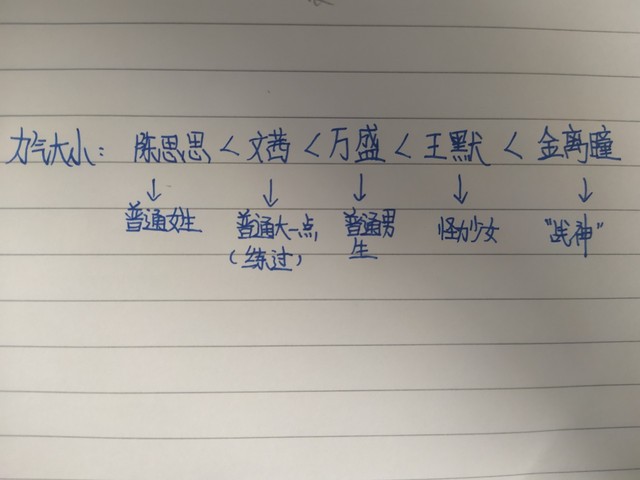 力气大小：陈思思＜文茜＜万盛＜王默＜金离瞳
↓ ↓ ↓ ↓ ↓
普通女生 普通大一点 普通男 怪力少女 "战神"
（练过） 生